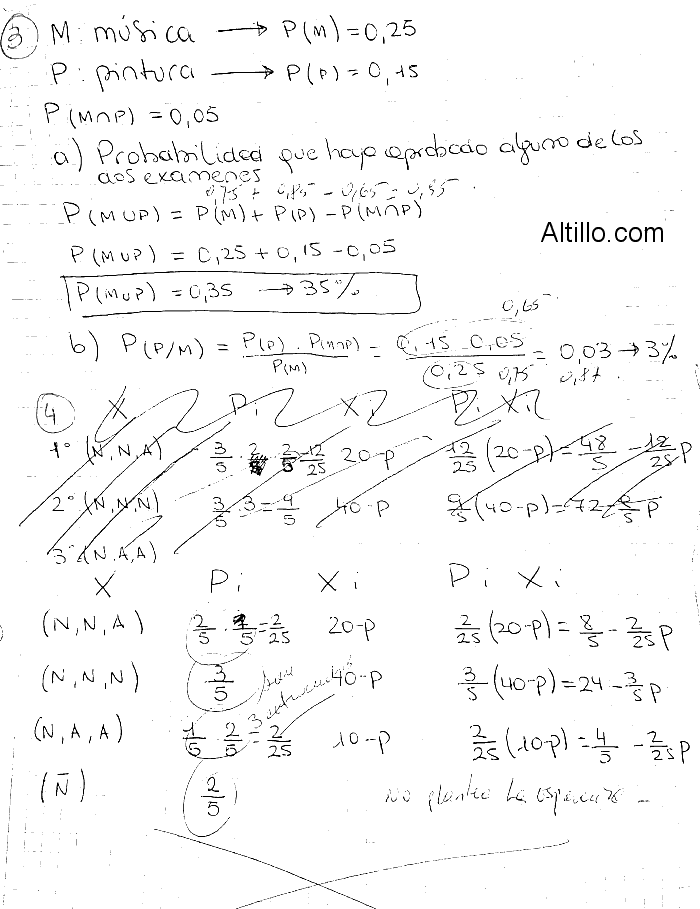 ③ M: música → P(M) = 0,25
P: pintura → P(P) = 0,15
P(M∩P) = 0,05
a) Probabilidad que haya aprobado alguno de los
dos examenes
0,75 + 0,85 - 0,65 = 0,95
P(M∪P) = P(M) + P(P) - P(M∩P)
Altillo.com
P(M∪P) = 0,25 + 0,15 - 0,05
P(M∪P) = 0,35 → 35%
0,65
b) P(P/M) = P(P) . P(M∩P) / P(M) = 0,15 . 0,05 / 0,25 = 0,03 → 3%
0,75 0,87
④ X Pi Xi Pi Xi
1° (N, N, A) 3/5 . 2/5 12/25 20-p 12/25 (20-p) = 48/5 - 12/25 p
2° (N, N, N) 3/5 . 3 = 9/5 40-p 9/5 (40-p) = 72 - 9/5 p
3° (N, A, A)
X Pi Xi Pi Xi
(N, N, A) 2/5 . 1/5 = 2/25 20-p 2/25 (20-p) = 8/5 - 2/25 p
(N, N, N) 3/5 40-p 3/5 (40-p) = 24 - 3/5 p
son 3
(N, A, A) 1/5 . 2/5 = 2/25 10-p 2/25 (10-p) = 4/5 - 2/25 p
(N̄) 2/5 No planteo la esperanza